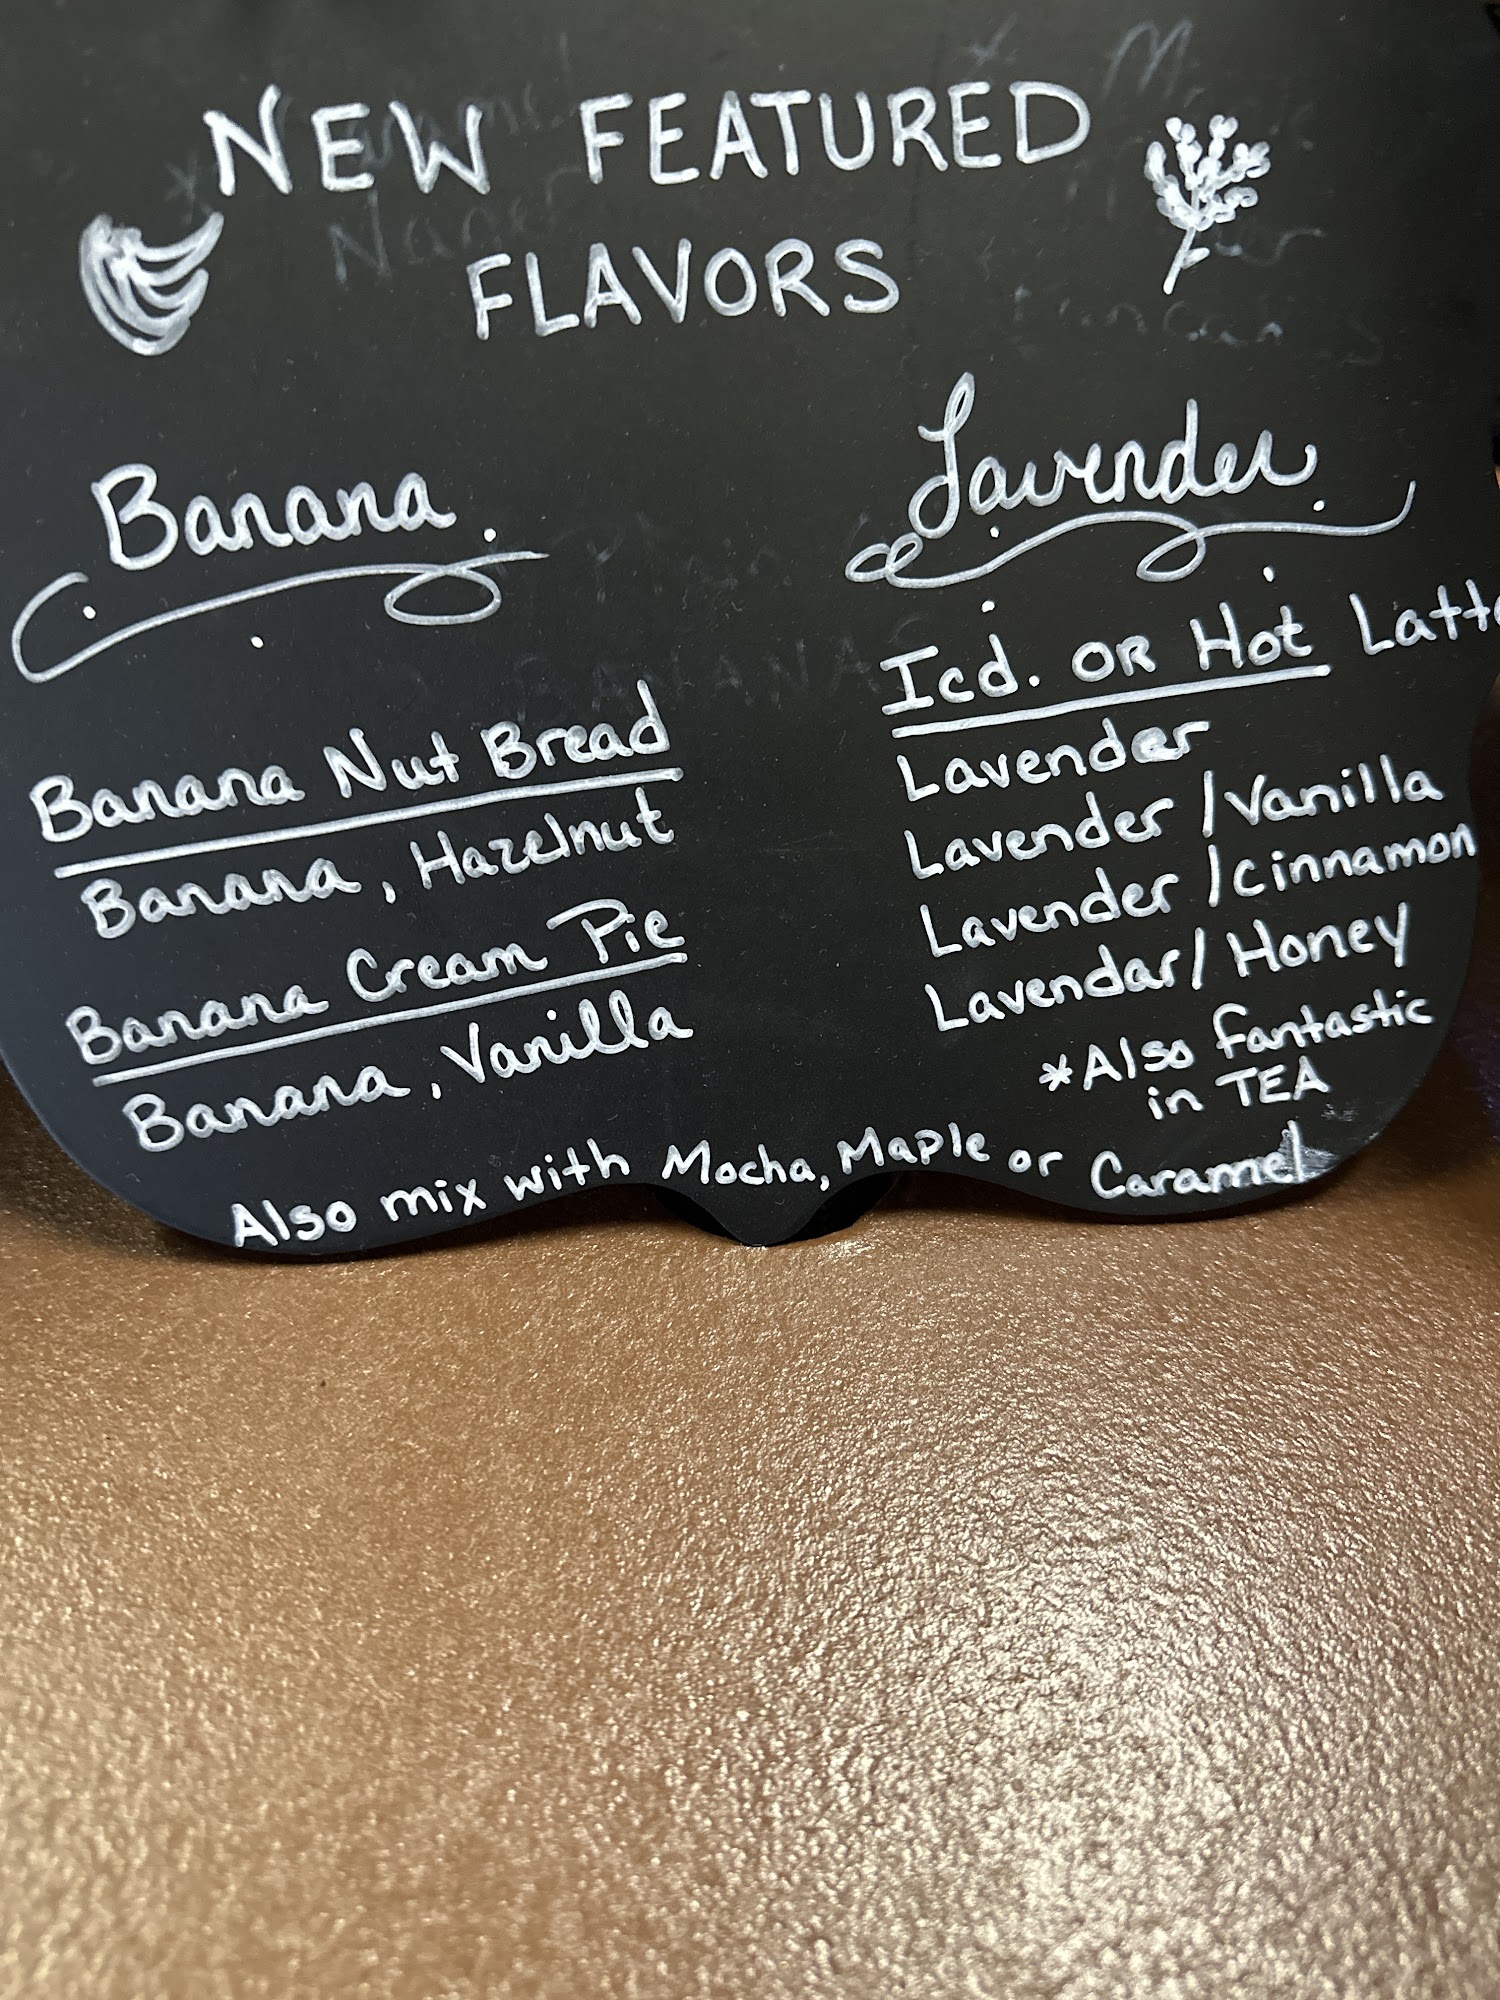 NEW FEATURED
FLAVORS
Banana
Banana Nut Bread
Banana, Hazelnut
Banana Cream Pie
Banana, Vanilla
Lavender
Icd. OR Hot Latte
Lavender
Lavender/Vanilla
Lavender/cinnamon
Lavendar/Honey
*Also fantastic
in TEA
Also mix with Mocha, Maple or Caramel